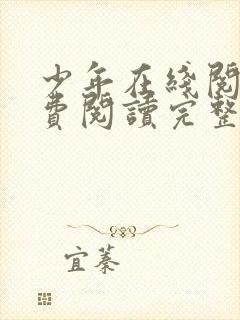 少年在綫閱
費閱讀完整
宜蓁